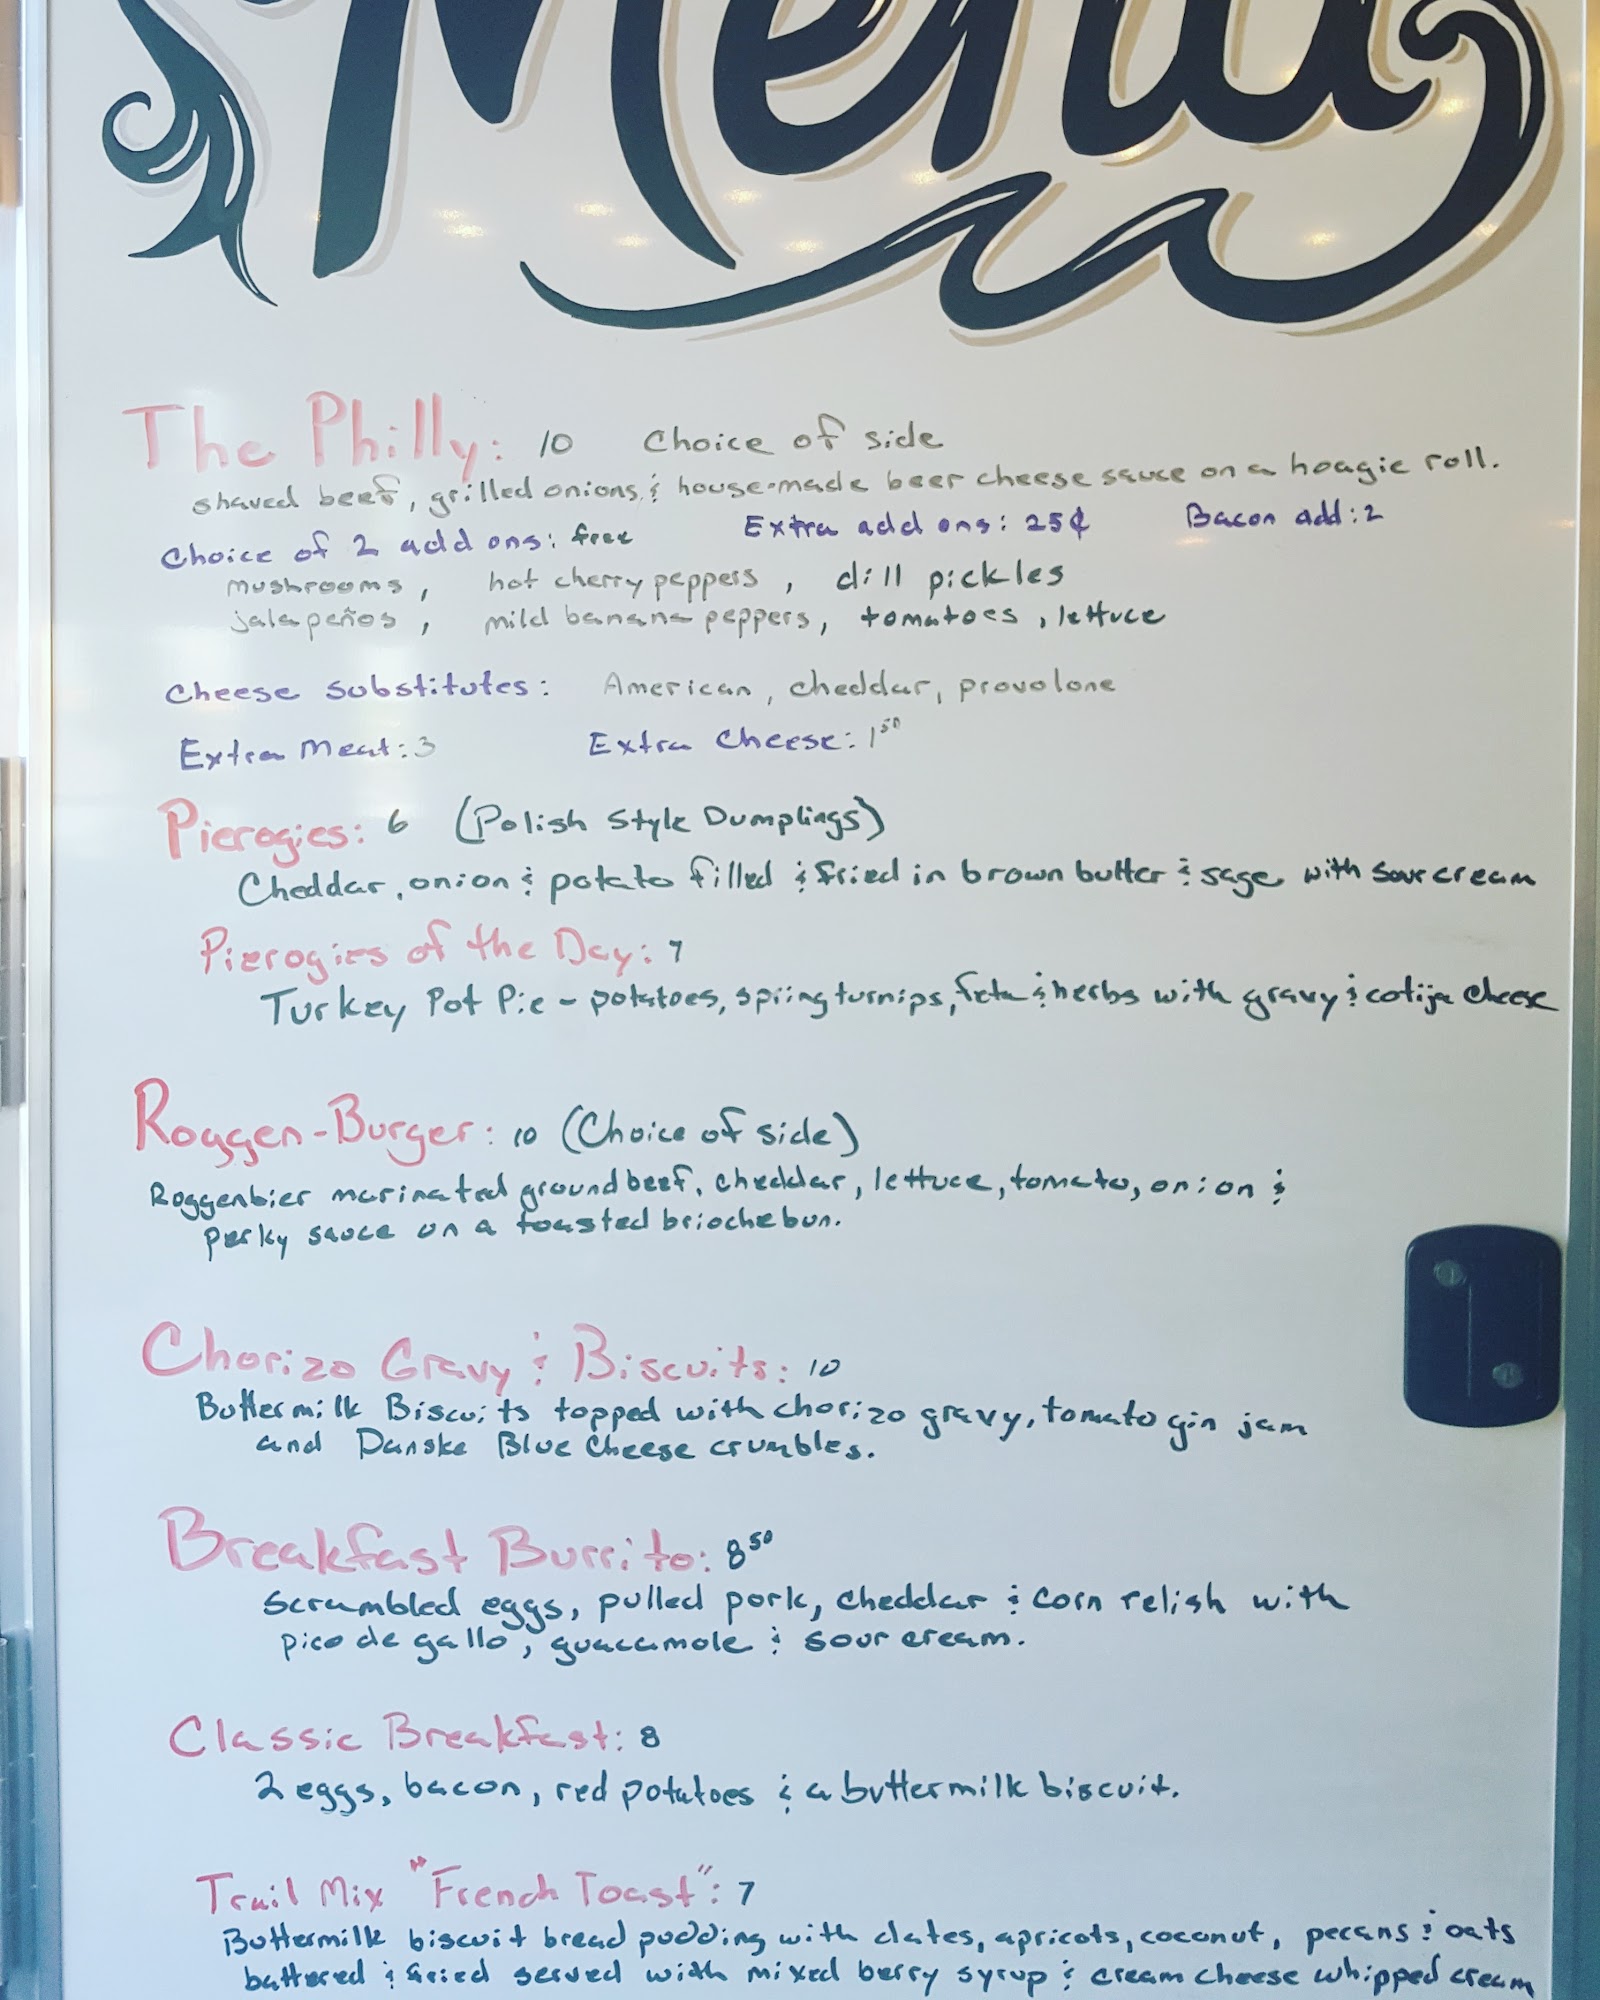 Menu
The Philly: 10 Choice of side
shaved beef, grilled onions, & house-made beer cheese sauce on a hoagie roll.
Choice of 2 add ons: free Extra add ons: 25¢ Bacon add: 2
mushrooms, hot cherry peppers, dill pickles
jalapeños, mild banana peppers, tomatoes, lettuce
Cheese substitutes: American, cheddar, provolone
Extra Meat: 3 Extra Cheese: 1⁵⁰
Pierogies: 6 (Polish Style Dumplings)
Cheddar, onion & potato filled & fried in brown butter & sage with sour cream
Pierogies of the Day: 7
Turkey Pot Pie - potatoes, spiing turnips, feta & herbs with gravy & cotija cheese
Roggen-Burger: 10 (Choice of side)
Roggenbier marinated ground beef, cheddar, lettuce, tomato, onion &
perky sauce on a toasted brioche bun.
Chorizo Gravy & Biscuits: 10
Buttermilk Biscuits topped with chorizo gravy, tomato gin jam
and Danske Blue Cheese crumbles.
Breakfast Burrito: 8⁵⁰
scrambled eggs, pulled pork, cheddar & corn relish with
pico de gallo, guacamole & sour cream.
Classic Breakfast: 8
2 eggs, bacon, red potatoes & a buttermilk biscuit.
Trail Mix "French Toast": 7
Buttermilk biscuit bread pudding with dates, apricots, coconut, pecans & oats
battered & fried served with mixed berry syrup & cream cheese whipped cream